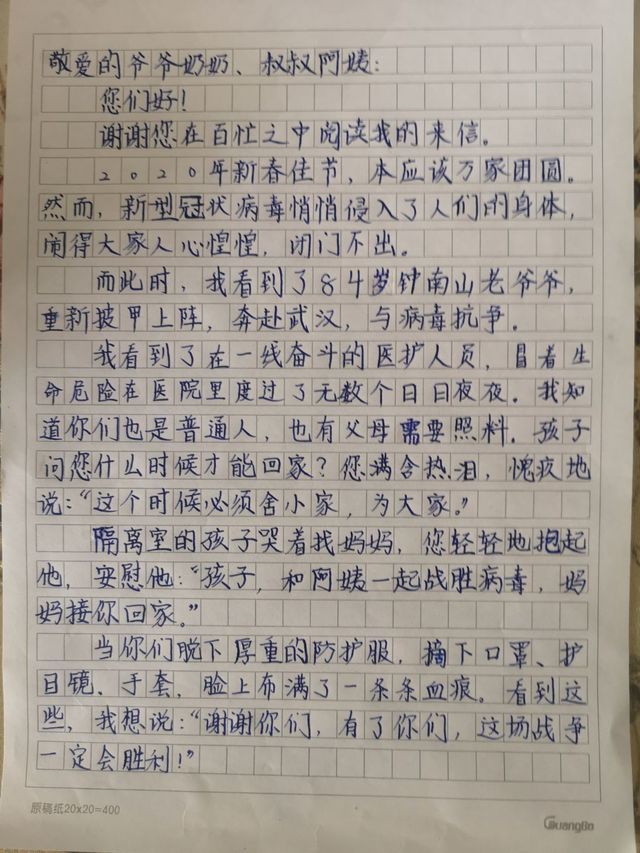 敬爱的爷爷奶奶、叔叔阿姨：
您们好！
谢谢您在百忙之中阅读我的来信。
2020年新春佳节，本应该万家团圆。
然而，新型冠状病毒悄悄侵入了人们的身体，
闹得大家人心惶惶，闭门不出。
而此时，我看到了84岁钟南山老爷爷，
重新披甲上阵，奔赴武汉，与病毒抗争。
我看到了在一线奋斗的医护人员，冒着生
命危险在医院里度过了无数个日日夜夜。我知
道你们也是普通人，也有父母需要照料。孩子
问您什么时候才能回家？您满含热泪，愧疚地
说：“这个时候必须舍小家，为大家。”
隔离室的孩子哭着找妈妈，您轻轻地抱起
他，安慰他：“孩子，和阿姨一起战胜病毒，妈
妈接你回家。”
当你们脱下厚重的防护服，摘下口罩、护
目镜、手套，脸上布满了一条条血痕。看到这
些，我想说：“谢谢你们，有了你们，这场战争
一定会胜利！”
原稿纸20x20=400
GuangBo